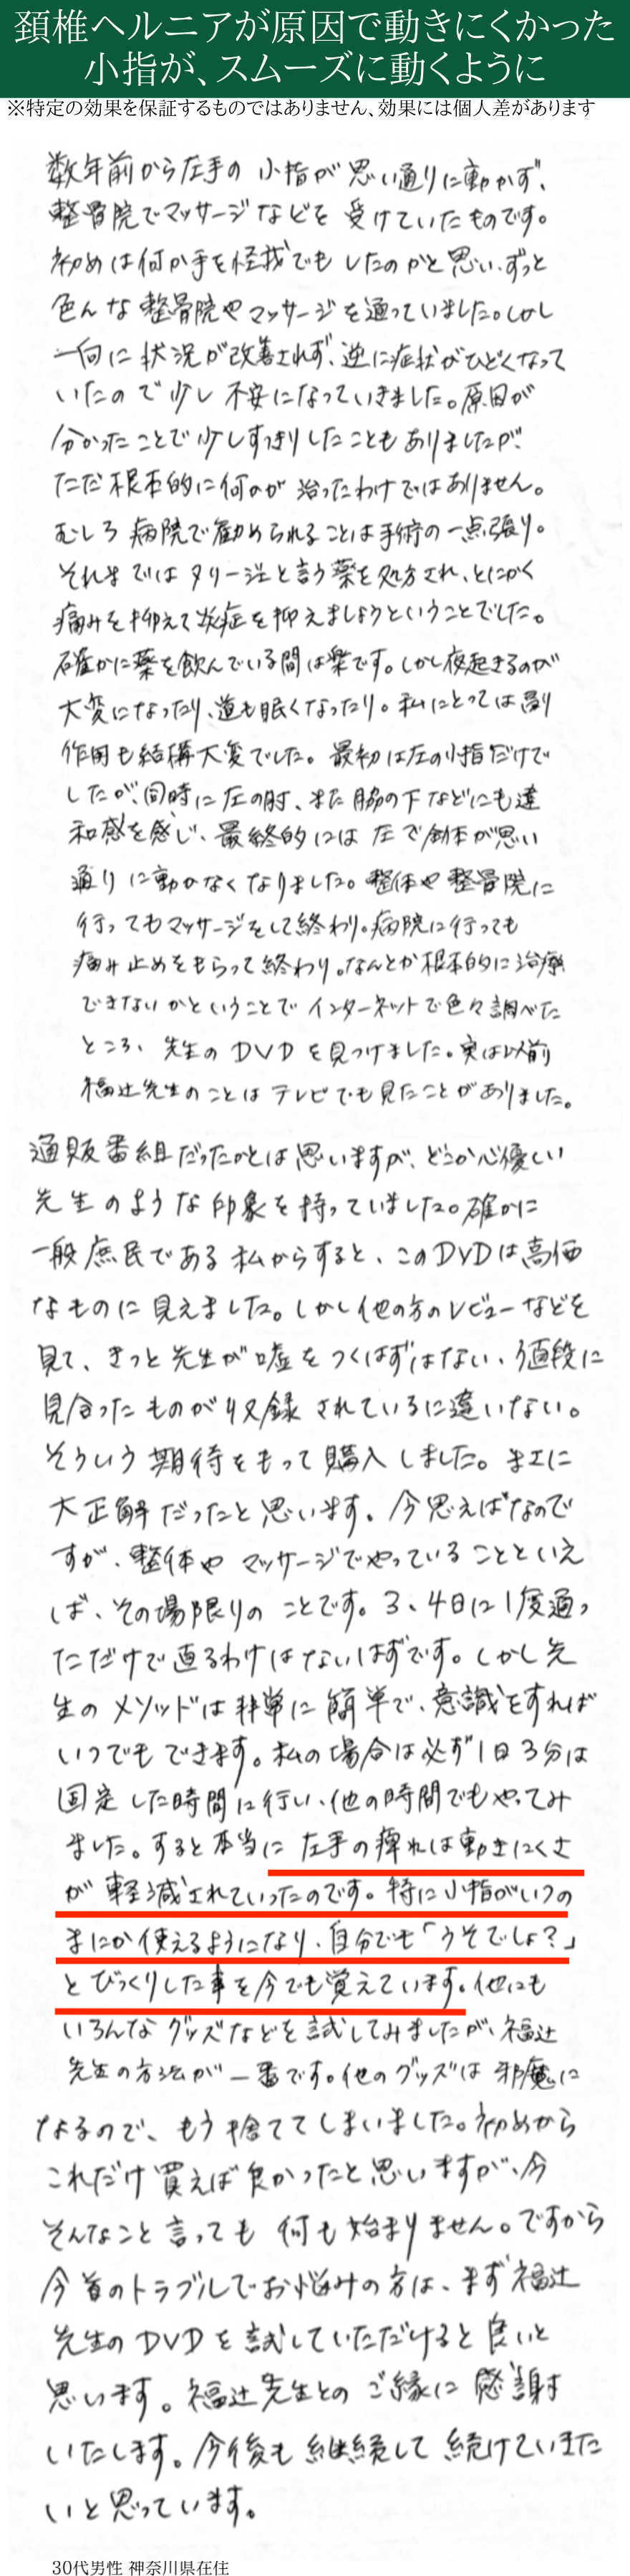 頚椎ヘルニアが原因で動きにくかった
小指が、スムーズに動くように
※特定の効果を保証するものではありません、効果には個人差があります
数年前から左手の小指が思い通りに動かず、
整骨院でマッサージなどを受けていたものです。
初めは何か手を怪我でもしたのかと思い、ずっと
色んな整骨院やマッサージを通っていました。しかし
一向に状況が改善されず、逆に症状がひどくなって
いたので少し不安になっていきました。原因が
分かったことで少しすっきりしたこともありましたが、
ただ根本的に何かが治ったわけではありません。
むしろ病院で勧められることは手術の一点張り。
それまではタリージェと言う薬を処方され、とにかく
痛みを抑えて炎症を抑えましょうということでした。
確かに薬を飲んでいる間は楽です。しかし夜起きるのが
大変になったり、道も眠くなったり。私にとっては副
作用も結構大変でした。最初は左の小指だけで
したが、同時に左の肘、また脇の下などにも違
和感を感じ、最終的には左で全体が思い
通りに動かなくなりました。整体や整骨院に
行ってもマッサージをして終わり。病院に行っても
痛み止めをもらって終わり。なんとか根本的に治療
できないかということでインターネットで色々調べた
ところ、先生のDVDを見つけました。実は以前
福辻先生のことはテレビでも見たことがありました。
通販番組だったかとは思いますが、どこか心優しい
先生のような印象を持っていました。確かに
一般庶民である私からすると、このDVDは高価
なものに見えました。しかし他の方のレビューなどを
見て、きっと先生が嘘をつくはずはない、値段に
見合ったものが収録されているに違いない。
そういう期待をもって購入しました。まさに
大正解だったと思います。今思えばなので
すが、整体やマッサージでやっていることといえ
ば、その場限りのことです。3、4日に1度通っ
ただけで直るわけはないはずです。しかし先
生のメソッドは非常に簡単で、意識をすれば
いつでもできます。私の場合は必ず1日3分は
固定した時間に行い、他の時間でもやってみ
ました。すると本当に左手の痺れは動きにくさ
が軽減されていったのです。特に小指がいつの
まにか使えるようになり、自分でも「うそでしょ?」
とびっくりした事を今でも覚えています。他にも
いろんなグッズなどを試してみましたが、福辻
先生の方法が一番です。他のグッズは邪魔に
なるので、もう捨ててしまいました。初めから
これだけ買えば良かったと思いますが、今
そんなこと言っても何も始まりません。ですから
今首のトラブルでお悩みの方は、まず福辻
先生のDVDを試していただけると良いと
思います。福辻先生とのご縁に感謝
いたします。今後も継続して続けていきた
いと思っています。
30代男性 神奈川県在住